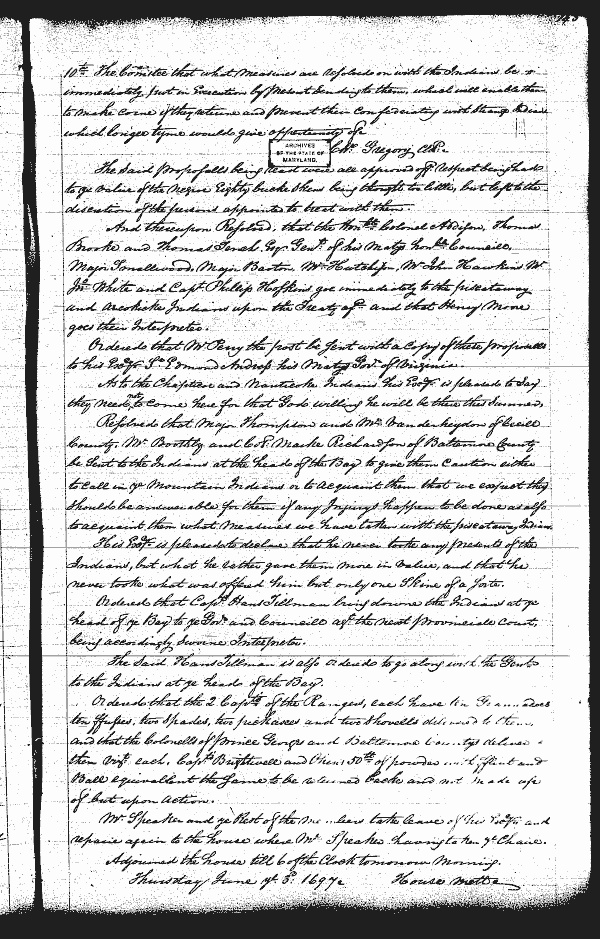 10th. The Comittee that what measures are resolved on with the Indians be
immediately put in Execution by present Sending to them, which will enable them
to make corne if they returne and prevent their Confederating with Strange Indians
which longer tyme would give oppertunity of &c
ARCHIVES
OF THE STATE OF
MARYLAND.
Chr. Gregory Clk.
The Said proposalls being read were all approved off Respect being had
to ye Value of the Negroe Eighty bucks Skins being thought too little, but left to the
discretion of the persons appointed to treat with them.
And thereupon Resolved, that the Honble Colonel Addison, Thomas
Brooke and Thomas Tench Esqr. Gent. of his Matys Honble Councill,
Major Smallwood, Major Barton, Mr. Hutchison, Mr. John Hawkins Mr
Jno. White and Capt. Phillip Hoskins goe immediately to the piscataway
and Accokicke Indians upon the Treaty afd. and that Henry Moore
goes their Interpreter.
Ordered that Mr Perry the post be Sent with a Copy of these proposalls
to his Exy. Sr. Edmond Andros his Matys Govr. of Virginia.
As to the Chaptico and Nanticoke Indians his Exy. is pleased to Say
they need not to come here for that God willing he will be there this Summer.
Resolved that Major Thompson and Mr Vanderheyden of Cecill
County, Mr. Boothby and Col. Marke Richardson of Baltemore County
be Sent to the Indians at the head of the Bay to give them caution either
to call in ye Mountain Indians or to acquaint them that we expect they
Should be answerable for them if any Injurys happen to be done as also
to acquaint them what measures we have taken with the piscataway Indians.
His Exy. is pleased to declare that he never tooke any presents of the
Indians, but what he rather gave them more in value, and that he
never tooke what was offered him but only one Skine of a
Ordered that Capt. Hans Tillman bring downe the Indians at ye
head of ye Bay to ye Govr. and Councill agt. the next provinciale Court,
being accordingly Sworne Interpreter.
The Said Hans Tillman is also ordered to go along with the Gent.
to the Indians at ye head of the Bay.
Ordered that the 2 Capts. of the Rangers, each have ten
ten fusees, two Spades, two pickaxes and two Shovells delivered to them
and that the Colonells of prince Georges and Baltemore Countys deliver
them vizt. each, Capt. Brightwell and 50lb of powder with flint and
Ball equivallent the Same to be returned backe and not made use
of but upon action.
Mr. Speaker and ye Rest of the Members take leave of his Exy. and
repaire again to the house where Mr. Speaker having taken ye Chaire.
Adjourned the house till 6 of the Clock tomorrow Morning.
Thursday June ye 3d. 1697 House mett